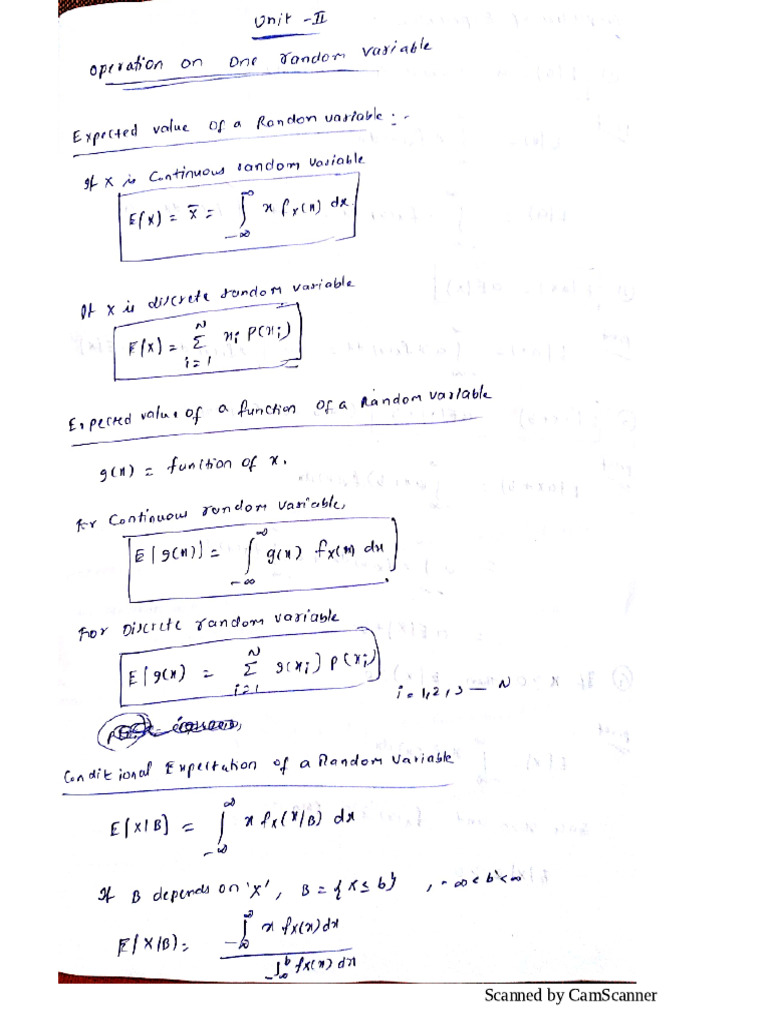 Unit - II
Operation on One random variable
Expected value of a Random variable : -
If X is Continuous random Variable
E[X] = X̄ = ∫_{-∞}^{∞} x f_X(x) dx
If X is discrete random variable
E[X] = Σ_{i=1}^{N} x_i P(x_i)
Expected value of a function of a Random variable
g(x) = funition of x.
for Continuous random Variable,
E[g(x)] = ∫_{-∞}^{∞} g(x) f_X(x) dx
For Discrete random variable
E[g(x) = Σ_{i=1}^{N} g(x_i) P(x_i)
i = 1, 2, 3 — N
Conditional Expectation of a Random Variable
E[X/B] = ∫_{-∞}^{∞} x f_X(x/B) dx
If B depends on 'X', B = {X ≤ b} , -∞ < b < ∞
E[X/B] = ∫_{-∞}^{∞} x f_X(x) dx
∫_{-∞}^{b} f_X(x) dx
Scanned by CamScanner